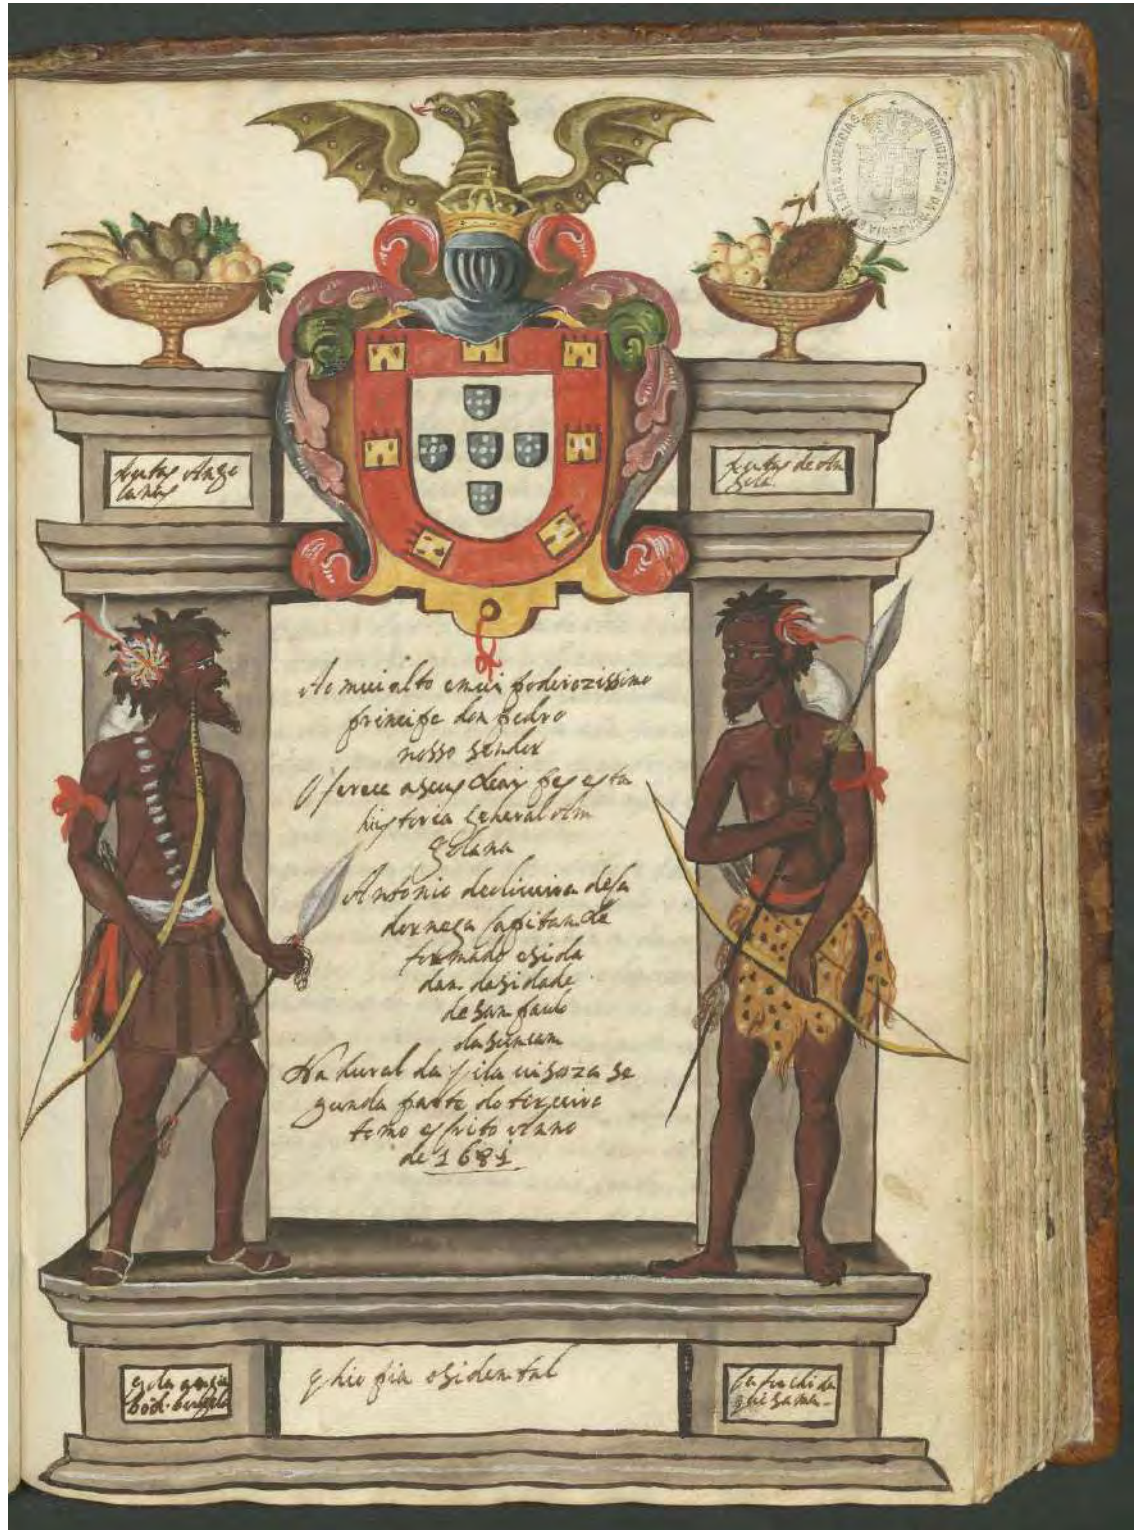 BIBLIOTHECA DA ACADEMIA R. DAS SCIENCIAS
frutas Ango
lanas
frutas de An
gola
Ao mui alto e mui poderozissimo
principe don pedro
nosso senhor
Oferece a seus Reais pes esta
historia general Am
golana
Antonio de oliveira de Ca
dornega Capitan Re
formado e sida
dan da sidade
de san paulo
da sumcam
Natural da vila visoza se
gunda parte do terceiro
tomo esprito o anno
de 1681
ethiopia osidental